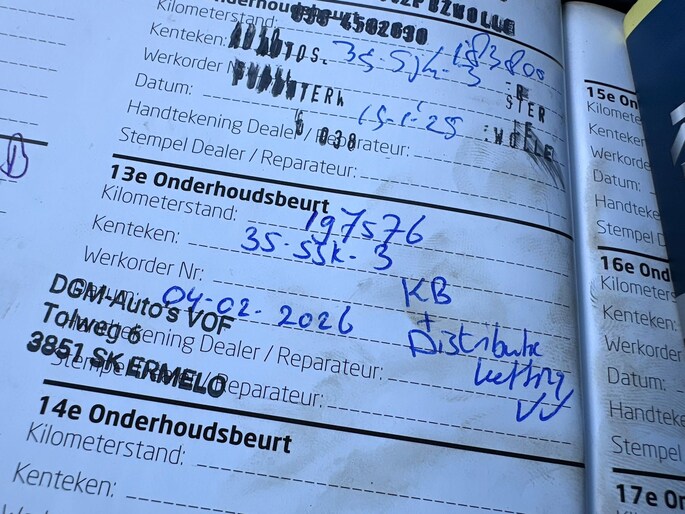 Kilometerstand: 183800
Kenteken: 35-SJK-3
Werkorder
Datum: 15-1-25
Handtekening Dealer / Reparateur:
Stempel Dealer / Reparateur:
13e Onderhoudsbeurt
Kilometerstand: 197576
Kenteken: 35-SJK-3
Werkorder Nr: KB
+
Datum: 04-02-2026 Distributie
ketting
VV
Handtekening Dealer / Reparateur:
Stempel Dealer / Reparateur:
DGM-Auto's VOF
Tolweg 6
3851 SK ERMELO
14e Onderhoudsbeurt
Kilometerstand:
Kenteken:
15e Ond
Kilomete
Kenteken
Werkorde
Datum:
Handteke
Stempel D
16e Ond
Kilometers
Kenteken:
Werkorder
Datum:
Handteke
Stempel
17e O